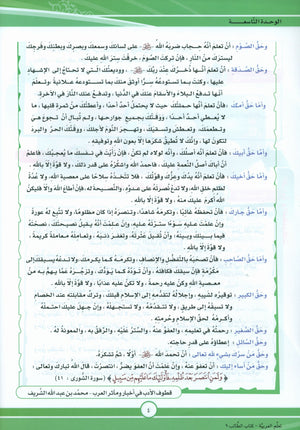 الوحدة التاسعة
وحقُّ الصَّوْم : أن تعلم أنَّه حجاب ضربه الله ﷻ على لسانك وسمعك وبصرك وبطنك وفرجك
ليسترك منَ النّار ، فإن تركتَ الصّومَ ، خرقتَ ستر الله عليك .
وحقُّ الصّدقة : أن تعلم أنّها ذخرك عند ربّك ﷻ ، ووديعتك الّتي لا تحتاج إلى الإشهاد
عليها ، وكنت بما تستودعه سرًّا أوثق منك بما تستودعه علانية ، وتعلم
أنها تدفع البلاء والأسقام عنك في الدّنيا ، وتدفع عنك النّار في الآخرة .
وأمّا حقُّ أمّك : فأن تعلم أنّها حملتك حيث لا يحتمل أحدٌ أحداً ، وأعطتك من ثمرة قلبها ، ما
لا يُعطي أحدٌ أحداً ، ووقتك بجميع جوارحها ، ولم تبال أن تجوع هي
وتطعمك ، وتعطش وتسقيك ، وتهجر النوم لأجلك ، ووقتك الحرّ والبرد
لتكون لها ، وإنّك لا تطيق شكرها إلّا بعون الله وتوفيقه .
وأمّا حقُّ أبيك : فأن تعلم أنّه أصلك ، وأنّه لولاه لم تكن ، فإن رأيت في نفسك ما يُعجبك ، فاعلم
أنّ أباك أصل النّعمة عليك ، فاحمد الله واشكره على قدر ذلك ، ولا قوّة إلّا بالله .
وأمّا حقُّ أخيك : فأن تعلم أنّه يدك وعزّك وقوّتك ، فلا تتّخذه سلاحاً على معصية الله ، ولا عُدّة
لظلم خلق الله ، ولا تدع نُصرته على عدوّه ، والنّصيحة له ، فإن أطاع الله وإلّا فليكن
الله أكرم عليك منه ، ولا قوّة إلّا بالله .
وأمّا حقُّ جارك : فأن تحفظه غائباً ، وتكرمه شاهداً ، وتنصره إذا كان مظلوماً ، ولا تتبع له عورة
وإن علمت عليه سوءًا سترته عليه ، وإن علمت أنّه يقبل نصيحتك ، نصحته
فيما بينك وبينه ، وأن تقيل عثرته ، وتغفر ذنبه ، وتعاشره معاشرة كريمة ،
ولا قوّة إلّا بالله .
وأمّا حقُّ الصاحب : فأن تصحبه بالتفضّل والإنصاف ، وتكرمه كما يكرمك ، ولا تدعه يسبقك إلى
مكرمة فإن سبقك كافأته ، وأن تودّه كما يودّك ، وتزجره عمّا يهمّ به من
معصية الله وكن عليه رحمةً ، ولا تكن عليه عذاباً ، ولا قوّة إلّا بالله .
وحقُّ الكبير : توقيره لشيبه ، وإجلاله لتقدّمه إلى الإسلام قبلك ، وترك مقابلته عند الخصام
ولا تسبقه إلى طريق ، ولا تتقدّمه ، ولا تستجهله ، وإن جهل عليك احتملته
وأكرمته لحقّ الإسلام وحُرمته .
وحقُّ الصغير : رحمته في تعليمه ، والعفو عنه ، والسّتر عليه ، والرّفق به ، والمعونة له .
وحقُّ السائل : إعطاؤه على قدر حاجته .
وحقُّ من سرّك بشيءٍ لله تعالى : أن تحمد الله ﷻ أوّلاً ، ثمّ تشكره .
وحقُّ من أساءك : أن تعفو عنه ، وإن علمت أنّ العفو يضرّ ، انتصرت ، قال الله تبارك وتعالى :
﴿ وَلَمَنِ انتَصَرَ بَعْدَ ظُلْمِهِ فَأُولَٰئِكَ مَا عَلَيْهِم مِّن سَبِيلٍ ﴾ ( سورة الشورى : ٤١ )
قطوف الأدب في أخبار ومآثر العرب - محمد بن عبد الله الشريف